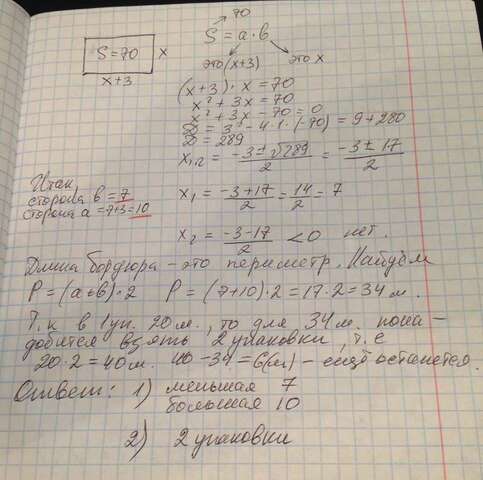 70
S = a · b
S = 70
x
x+3
это (x+3)
это x
(x+3) · x = 70
x² + 3x = 70
x² + 3x - 70 = 0
D = 3² - 4 · 1 · (-70) = 9 + 280
D = 289
x₁,₂ = (-3 ± √289)/2 = (-3 ± 17)/2
Итак,
сторона b = 7
сторона a = 7+3 = 10
x₁ = (-3+17)/2 = 14/2 = 7
x₂ = (-3-17)/2 < 0 нет.
Длина бордюра - это периметр. Найдём
P = (a+b) · 2 P = (7+10) · 2 = 17 · 2 = 34 м.
Т.к в 1 уп. 20 м., то для 34 м. пона-
добится взять 2 упаковки, т.е
20 · 2 = 40 м. 40 - 34 = 6(м) - ещё останется.
Ответ: 1) меньшая 7
большая 10
2) 2 упаковки